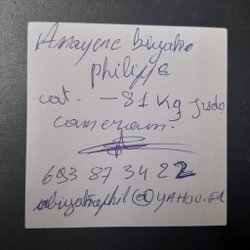 Amayene biyatro
philippe
cat. - 81 Kg Judo
cameroun.
693 87 34 22
abiyatrophil@YAHOO.FR